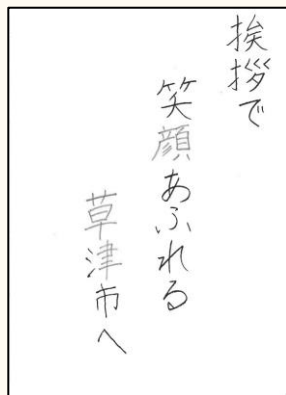 挨拶で
笑顔あふれる
草津市へ